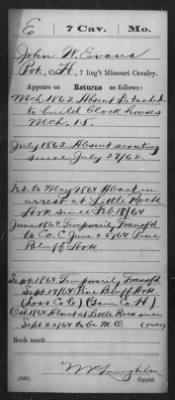 E 7 Cav. Mo.
John W. Evans
Pvt., Co. H, 7 Reg't Missouri Cavalry.
Appears on Returns as follows:
Mch 1862 Absent Detached
to build block houses
Mch. 15.
July 1862 Absent scouting
since July 27/62
Feb to May 1864 Absent in
arrest at Little Rock
Ark since Feb 18/64
June 1864 Temporarily Transf'd
to Co. C June 25/64 Pine
Bluff Ark.
Sept 1864 Temporarily Transf'd
Sept 17/64 Pine Bluff Ark
(Loss Co C) (Gain Co H)
Oct 1864 Absent at Little Rock since
Sept 22/64 to be M.O. (over)
Book mark:
(546) Copyist.